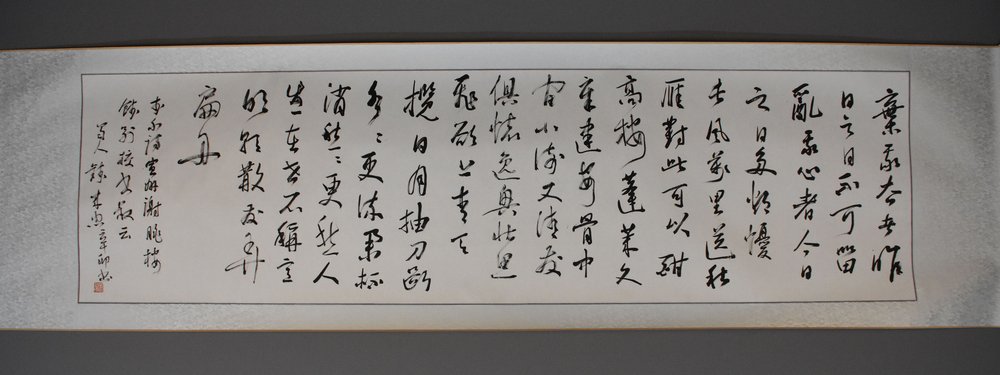 棄我去者昨
日之日不可留
亂我心者今日
之日多煩憂
長風萬里送秋
雁對此可以酣
高樓蓬萊文
章建安骨中
間小謝又清發
俱懷逸興壯思
飛欲上青天
攬日月抽刀斷
水〻更流舉杯
消愁〻更愁人
生在世不稱意
明朝散發弄
扁舟
李白詩宣州謝朓樓
餞別校書叔云